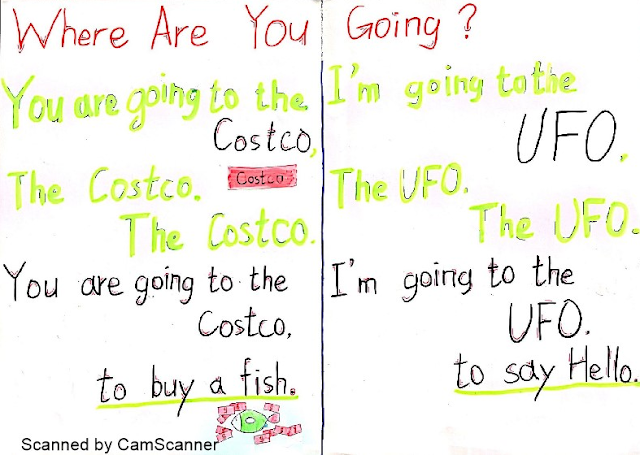 Where Are You Going?
You are going to the
Costco,
The Costco.
Costco
The Costco.
You are going to the
Costco,
to buy a fish.
I'm going to the
UFO.
The UFO.
The UFO.
I'm going to the
UFO.
to say Hello.
Scanned by CamScanner